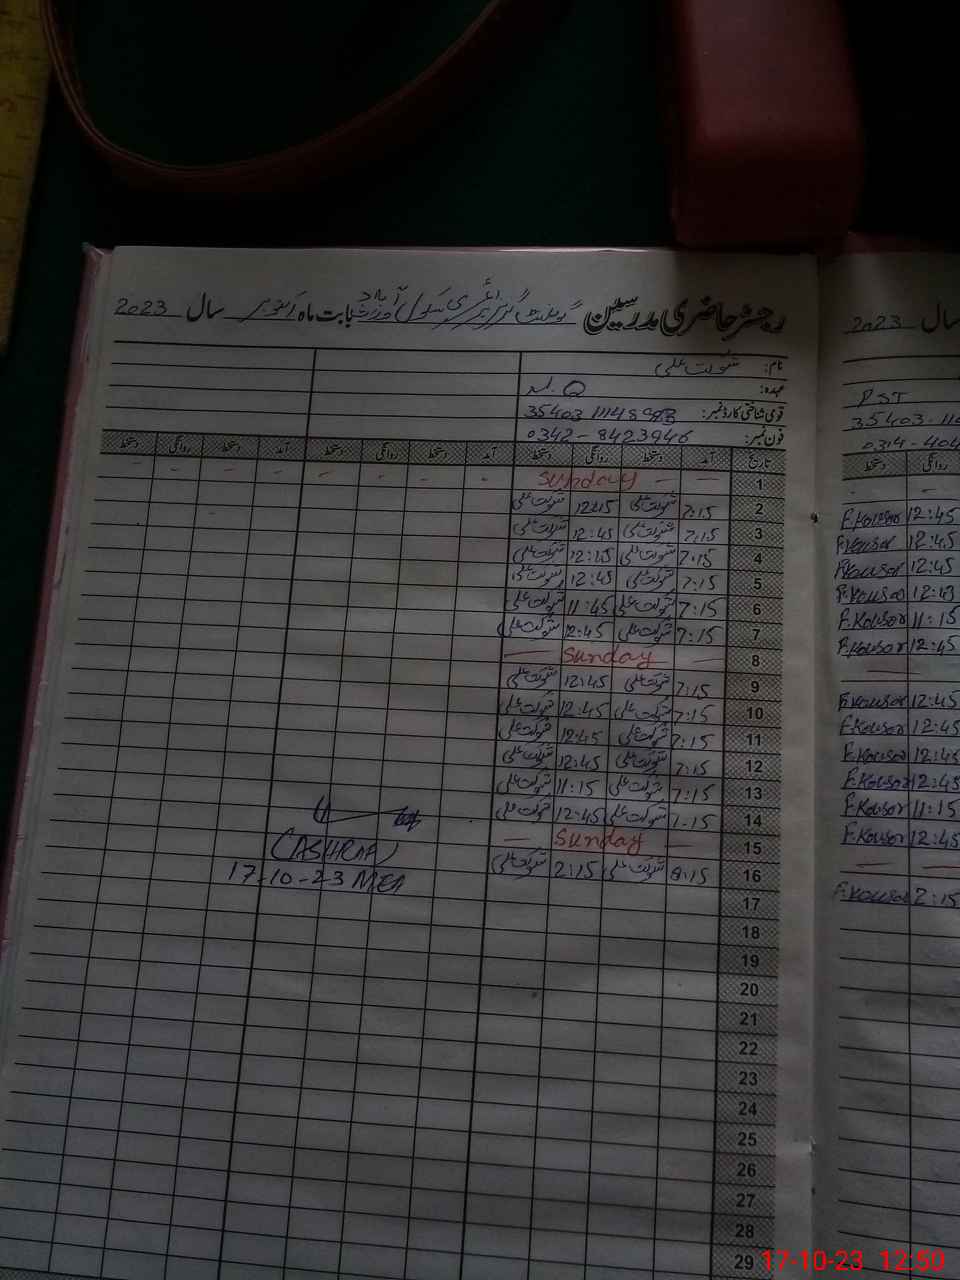 رجسٹر حاضری مدرسین گورنمنٹ گرلز پرائمری سکول آباد بابت ماہ اکتوبر سال 2023
نام: شوکت علی
عہدہ: N.Q
قومی شناختی کارڈ نمبر: 35403
فون نمبر: 0342-8423946
تاریخ آمد دستخط روانگی دستخط آمد دستخط روانگی دستخط آمد دستخط روانگی دستخط
1 — — Sunday
2 7:15 شوکت علی 12:45 شوکت علی
3 7:15 شوکت علی 12:45 شوکت علی
4 7:15 شوکت علی 12:45 شوکت علی
5 7:15 شوکت علی 12:45 شوکت علی
6 7:15 شوکت علی 11:45 شوکت علی
7 7:15 شوکت علی 12:45 شوکت علی
8 — Sunday —
9 7:15 شوکت علی 12:45 شوکت علی
10 7:15 شوکت علی 12:45 شوکت علی
11 7:15 شوکت علی 12:45 شوکت علی
12 7:15 شوکت علی 12:45 شوکت علی
13 7:15 شوکت علی 11:15 شوکت علی
14 7:15 شوکت علی 12:45 شوکت علی
15 — Sunday —
16 8:15 شوکت علی 2:15 شوکت علی
17
18
19
20
21
22
23
24
25
26
27
28
29
(ASHRAF)
17-10-23 MEA
سال 2023
PST
35403-110
0314-404
روانگی دستخط
F.Kousar 12:45
F.Kousar 12:45
F.Kousar 12:45
F.Kousar 12:45
F.Kousar 11:15
F.Kousar 12:45
F.Kousar 12:45
F.Kousar 12:45
F.Kousar 12:45
F.Kousar 12:45
F.Kousar 11:15
F.Kousar 12:45
F.Kousar 2:15
17-10-23 12:50